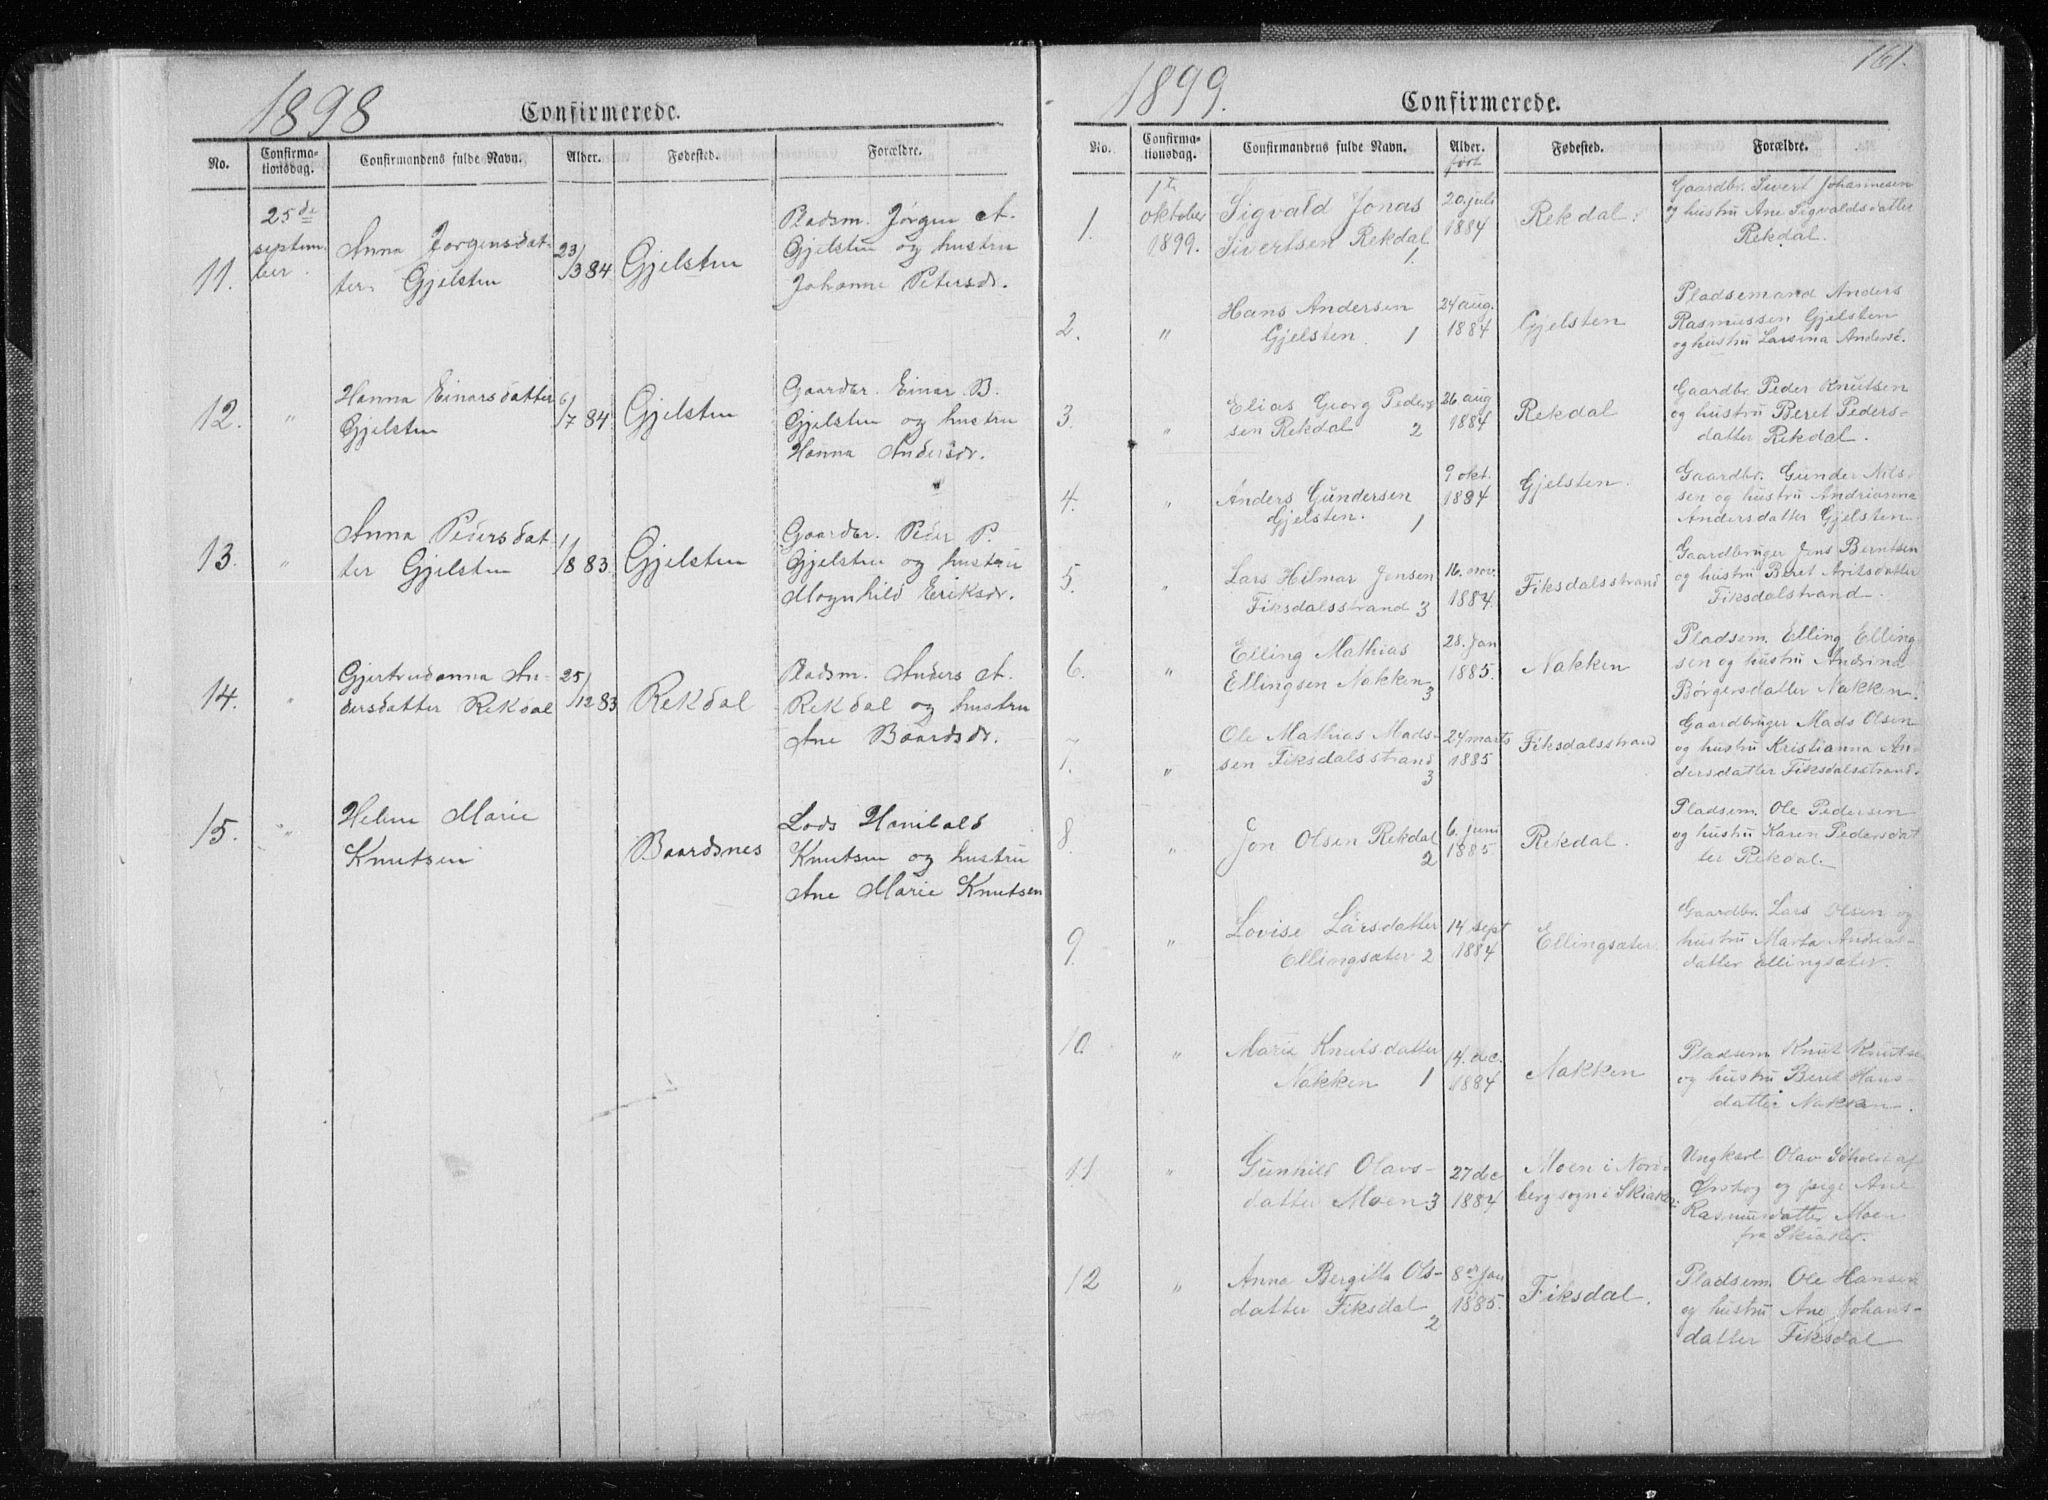 1898
Confirmerede.
No.
Confirma-
tionsdag.
Confirmandens fulde Navn.
Alder.
Fødested.
Forældre.
11.
25de
septem-
ber.
Anna Jørgensdat-
ter Gjelsten
23/3 84
Gjelsten
Pladsm. Jørgen A.
Gjelsten og hustru
Johanne Petersdr.
12.
"
Hanna Einarsdatter
Gjelsten
6/7 84
Gjelsten
Gaardbr. Einar B.
Gjelsten og hustru
Hanna Andersdr.
13.
"
Anna Pedersdat-
ter Gjelsten
1/8 83.
Gjelsten
Gaardbr. Peder P.
Gjelsten og hustru
Magnhild Eriksdr.
14.
"
Gjertrudanna An-
dersdatter Rekdal
25/12 83
Rekdal
Pladsm. Anders A.
Rekdal og hustru
Ane Baardsdr.
15.
"
Helene Marie
Knutsen
Baardsnes
Lods Hanibald
Knutsen og hustru
Ane Marie Knutsen
161.
1899.
Confirmerede.
No.
Confirma-
tionsdag.
Confirmandens fulde Navn.
Alder.
født
Fødested.
Forældre.
1.
1te
oktober
1899.
Sigvald Jonas
Sivertsen Rekdal
1.
20. juli
1884
Rekdal.
Gaardbr. Sivert Johannesen
og hustru Ane Sigvaldsdatter
Rekdal.
2.
"
Hans Andersen
Gjelsten. 1
24 aug.
1884
Gjelsten
Pladsemand Anders
Rasmussen Gjelsten
og hustru Larsina Andersd.
3.
"
Elias Georg Peder-
sen Rekdal 2
26 aug
1884
Rekdal
Gaardbr. Peder Knutsen
og hustru Beret Peders-
datter Rekdal.
4.
"
Anders Gundersen
Gjelsten. 1
9 okt.
1884
Gjelsten.
Gaardbr. Gunder Nils-
sen og hustru Andrianna
Andersdatter Gjelsten.
5.
"
Lars Hilmar Jensen
Fiksdalsstrand 3
16. nov.
1884.
Fiksdalsstrand
Gaardbruger Jens Berntsen
og hustru Beret
Fiksdalstrand.
6.
"
Elling Mathias
Ellingsen Nakken
3
28. Jan
1885.
Nakken
Pladsem. Elling Elling-
sen og hustru Andrina
Børgersdatter Nakken.
7.
"
Ole Mathias Mads-
sen Fiksdalsstrand
3
24 marts
1885
Fiksdalsstrand
Gaardbruger Mads Olsen
og hustru Kristianna An-
dersdatter Fiksdalsstrand.
8.
"
Jon Olsen Rekdal
2
6. juni
1885.
Rekdal.
Pladsem. Ole Pedersen
og hustru Karen Pedersdat
ter Rekdal.
9.
"
Lovise Larsdatter
Ellingsæter 2
14 sept
1884
Ellingsæter.
Gaardbr. Lars Olsen og
hustru Marta Andreas-
datter Ellingsæter.
10.
"
Marie Knutsdatter
Nakken 1
14. dec.
1884
Nakken
Pladsem. Knut Knutse
og hustru Beret Hans-
datter Nakken.
11
"
Gunhild Olavs-
datter Moen 3
27 dec
1884
Moen i Nord-
berg sogn i Skiaker
Ungkarl Olav Søholt af
Ørskog og pige Ane
Rasmusdatter Moen
fra Skiaker.
12
"
Anna Bergitta Ols-
datter Fiksdal
2
8de Jan
1885.
Fiksdal.
Pladsem. Ole Hansen
og hustru Ane Johans-
datter Fiksdal